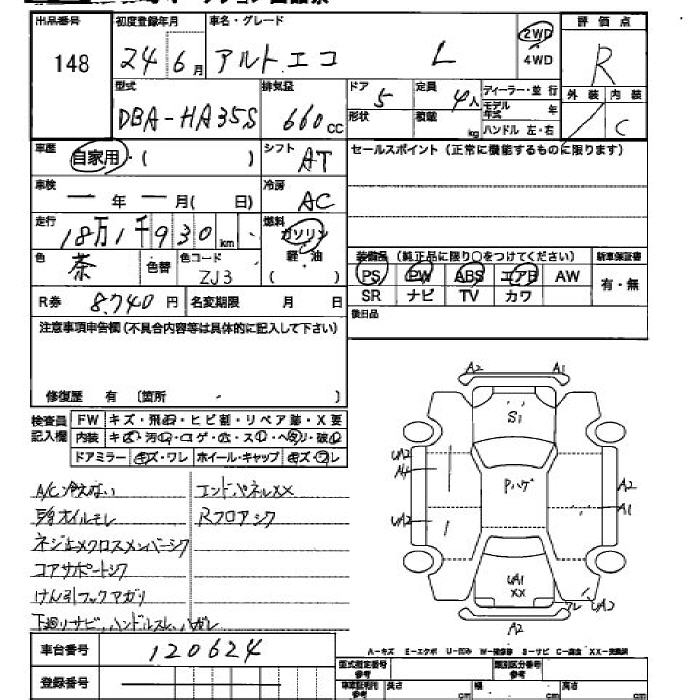 出品番号
148
初度登録年月
24 6月
車名・グレード
アルト.エコ L
2WD
4WD
評価点
R
外装 内装
C
型式
DBA-HA35S
排気量
660cc
ドア
5
定員
4人
ディーラー・並行
モデル年式 年
ハンドル 左・右
形状
積載 kg
車歴
自家用・( )
シフト
AT
セールスポイント(正常に機能するものに限ります)
車検
— 年 — 月( 日)
冷房
AC
走行
18万1千930km
燃料
ガソリン
軽・油
( )
色
茶
色替
色コード
ZJ3
装備品(純正品に限り○をつけてください)
新車保証書
PS PW ABS エアB AW
SR ナビ TV カワ
有・無
R券 8,740円
名変期限 月 日
後日品
注意事項申告欄(不具合内容等は具体的に記入して下さい)
修復歴 有 〔箇所 〕
検査員記入欄
FW キズ・飛石・ヒビ割・リペア跡・X要
内装
ドアミラー キズ・ワレ ホイール・キャップ キズ・ワレ
A/C冷えない
エンドパネルXX
Rフロアシワ
コアサポートシワ
けん引フックアガリ
A2 A1
S1
UA2
A4
Pハゲ
A2
UA2
A1
UA1
XX
UA2
A2
車台番号
120624
登録番号
A-キズ E-エクボ U-凹み S-サビ
型式指定番号
参考
類別区分番号
参考
長さ cm
幅 cm
高さ cm